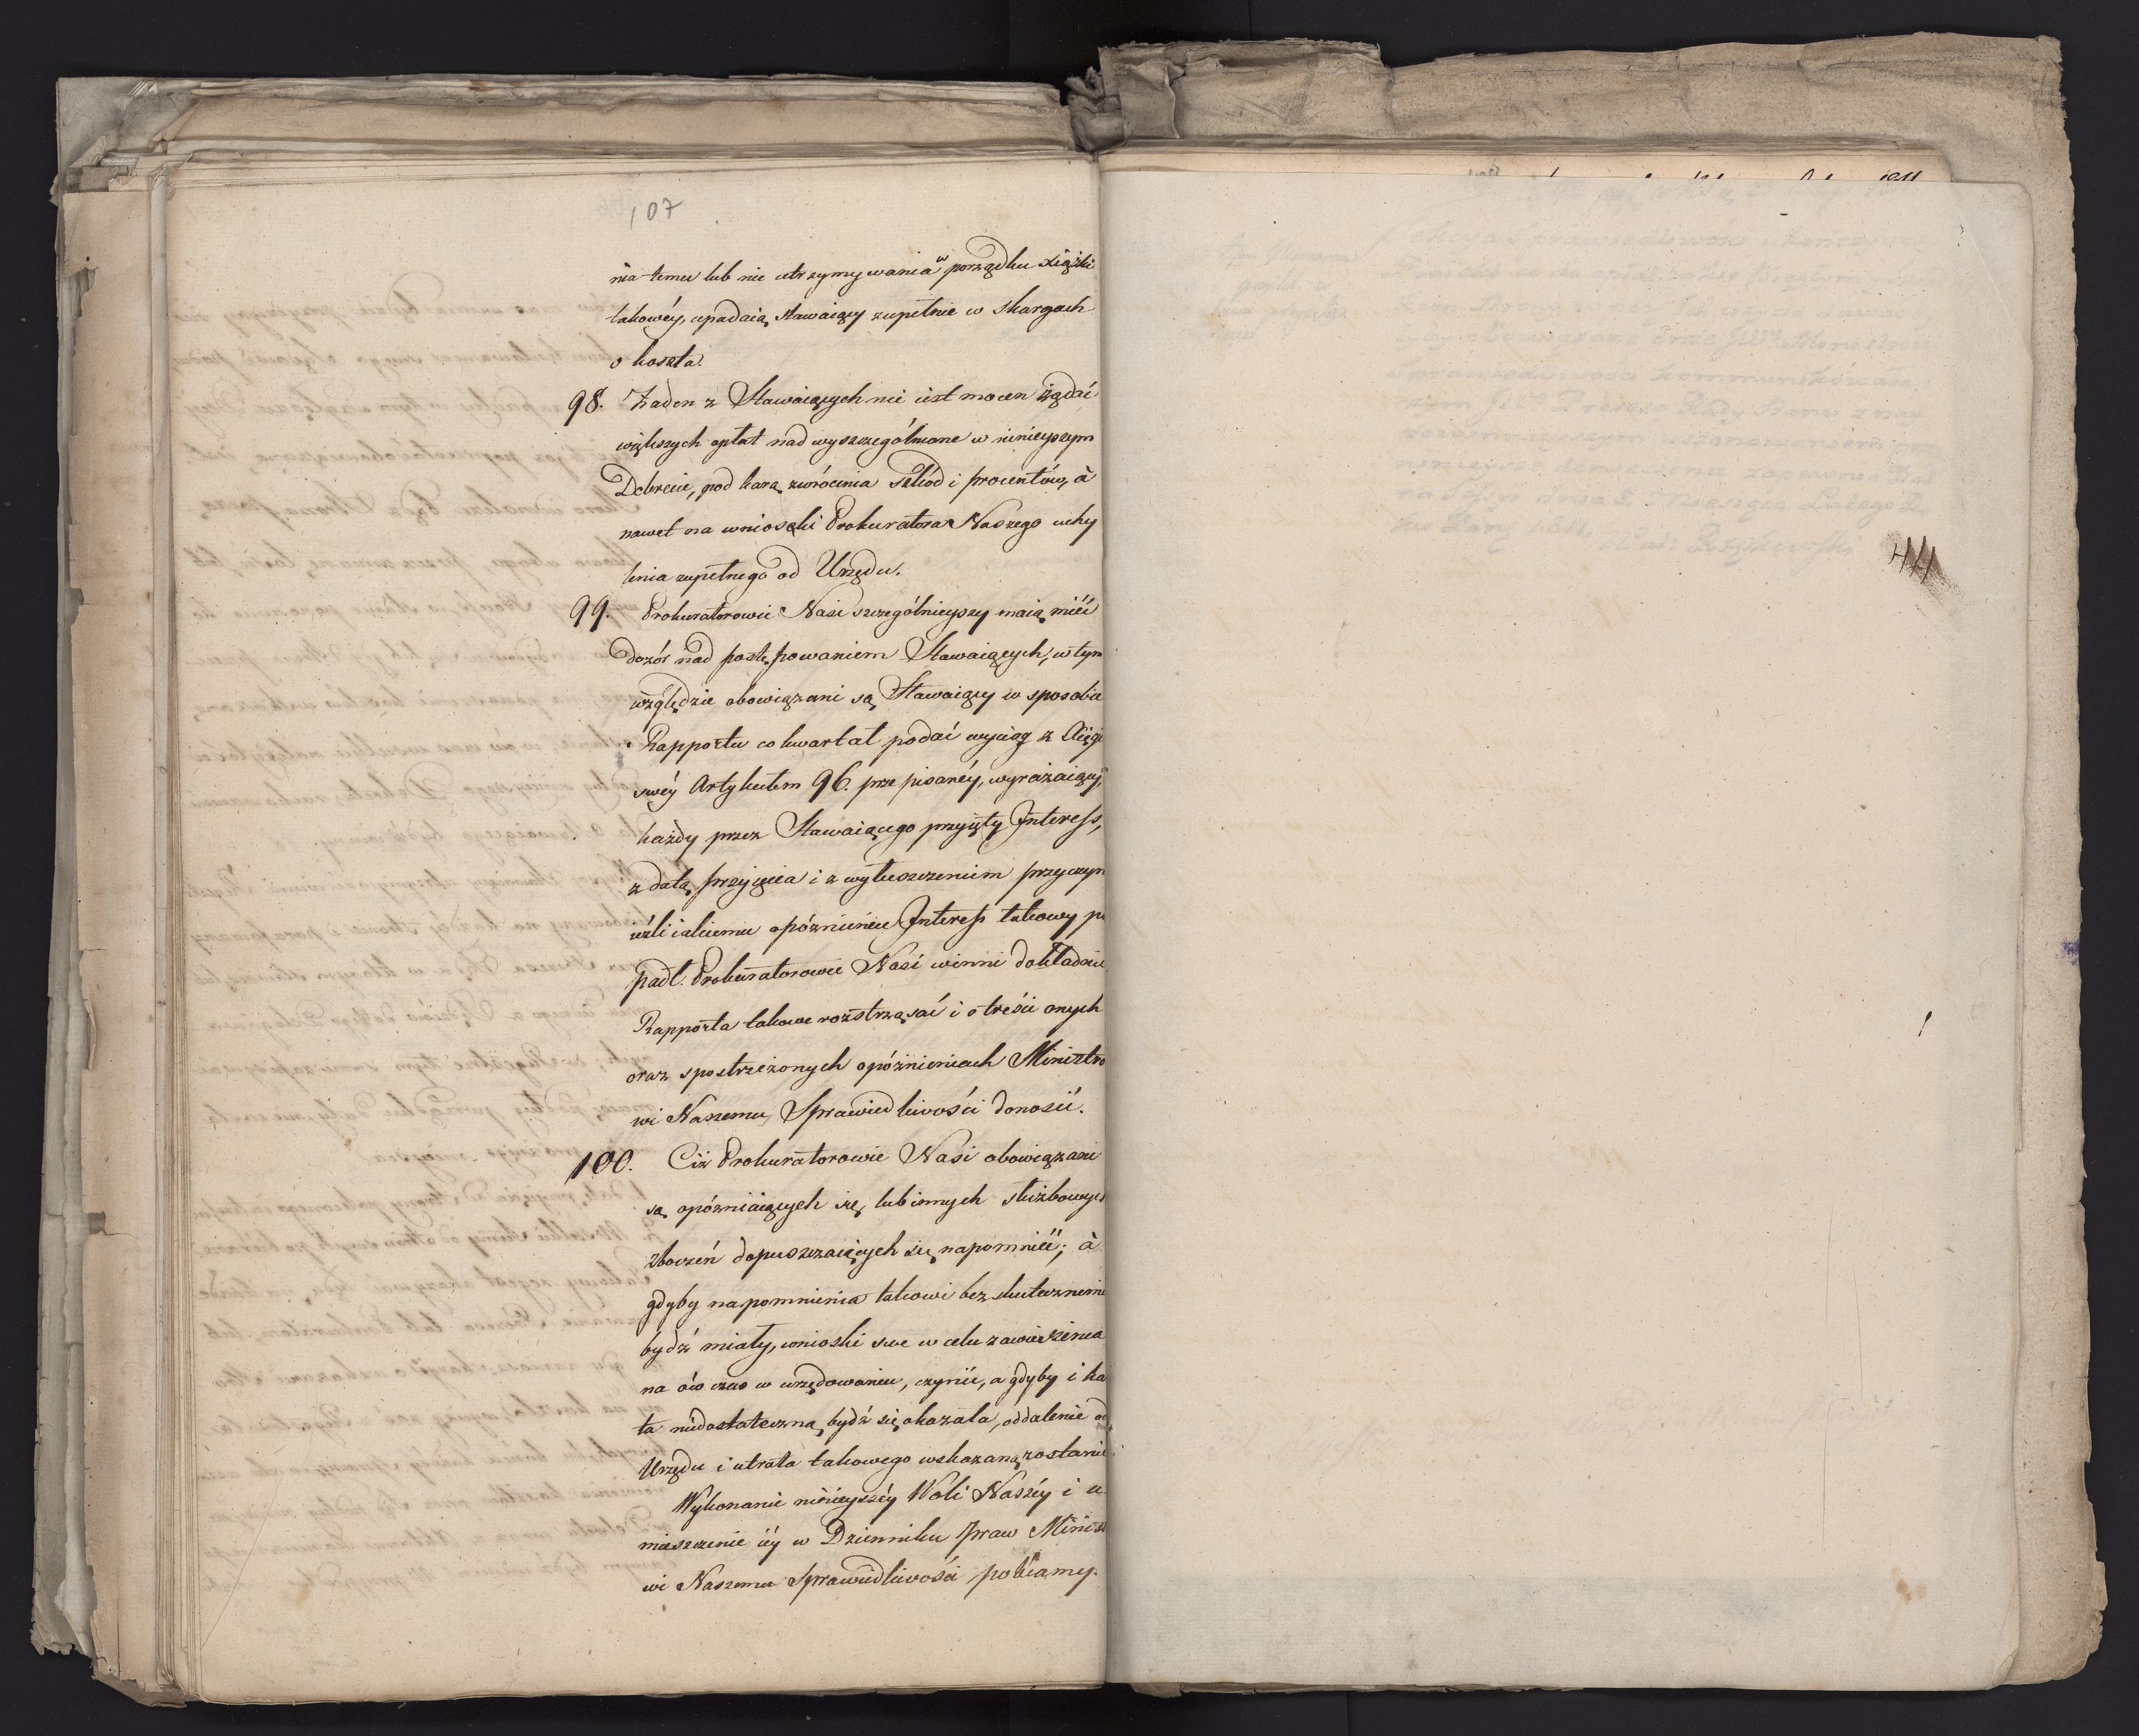 107
nia temu lub nie utrzymywania w porządku xiążki
takowéy, upadaią stawaiący zupełnie w skargach
o koszta.
98. Żaden z Stawaiących nie iest mocen żądać
większych opłat nad wyszczególnione w ninieyszym
Dekrecie, pod karą zwrócenia szkód i procentów, à
nawet na wnioski Prokuratora Naszego uchy
lenia zupełnego od Urzędu.
99. Prokuratorowie Nasi szczególnieyszy maią mieć
dozór nad postępowaniem Stawaiących, w tym
względzie obowiązani są Stawaiący w sposobie
Rapportu co kwartał podać wyciąg z Xięgi
swéy Artykułem 96. przepisanéy, wyrażaiący,
każdy przez Stawaiącego przyięty Interess,
z datą przyięcia i z wyłuszczeniem przyczyn
ieżli iakiemu opóznieniu Interess takowy po
padł. Prokuratorowie Nasi winni dokładnie
Rapporta takowe roztrząsać i o treści onych
oraz spostrzeżonych opóźnieniach Ministro
wi Naszemu Sprawiedliwości donosić.
100. Ciż Prokuratorowie Nasi obowiązani
są opózniaiących się lub innych służbowych
zboczeń dopuszczaiących się napomnieć; à
gdyby napomnienia takowe bezskutecznemi
bydź miały, wnioski swe w celu zawieszenia
na ów czas w urzędowaniu, czynić, a gdyby i ka
ra niedostateczną bydź się okazała, oddalenie od
Urzędu i utrata takowego wskazaną zostanie.
Wykonanie ninieyszéy Woli Naszéy i u
mieszczenie iéy w Dzienniku Praw Ministro
wi Naszemu Sprawiedliwości polecamy.